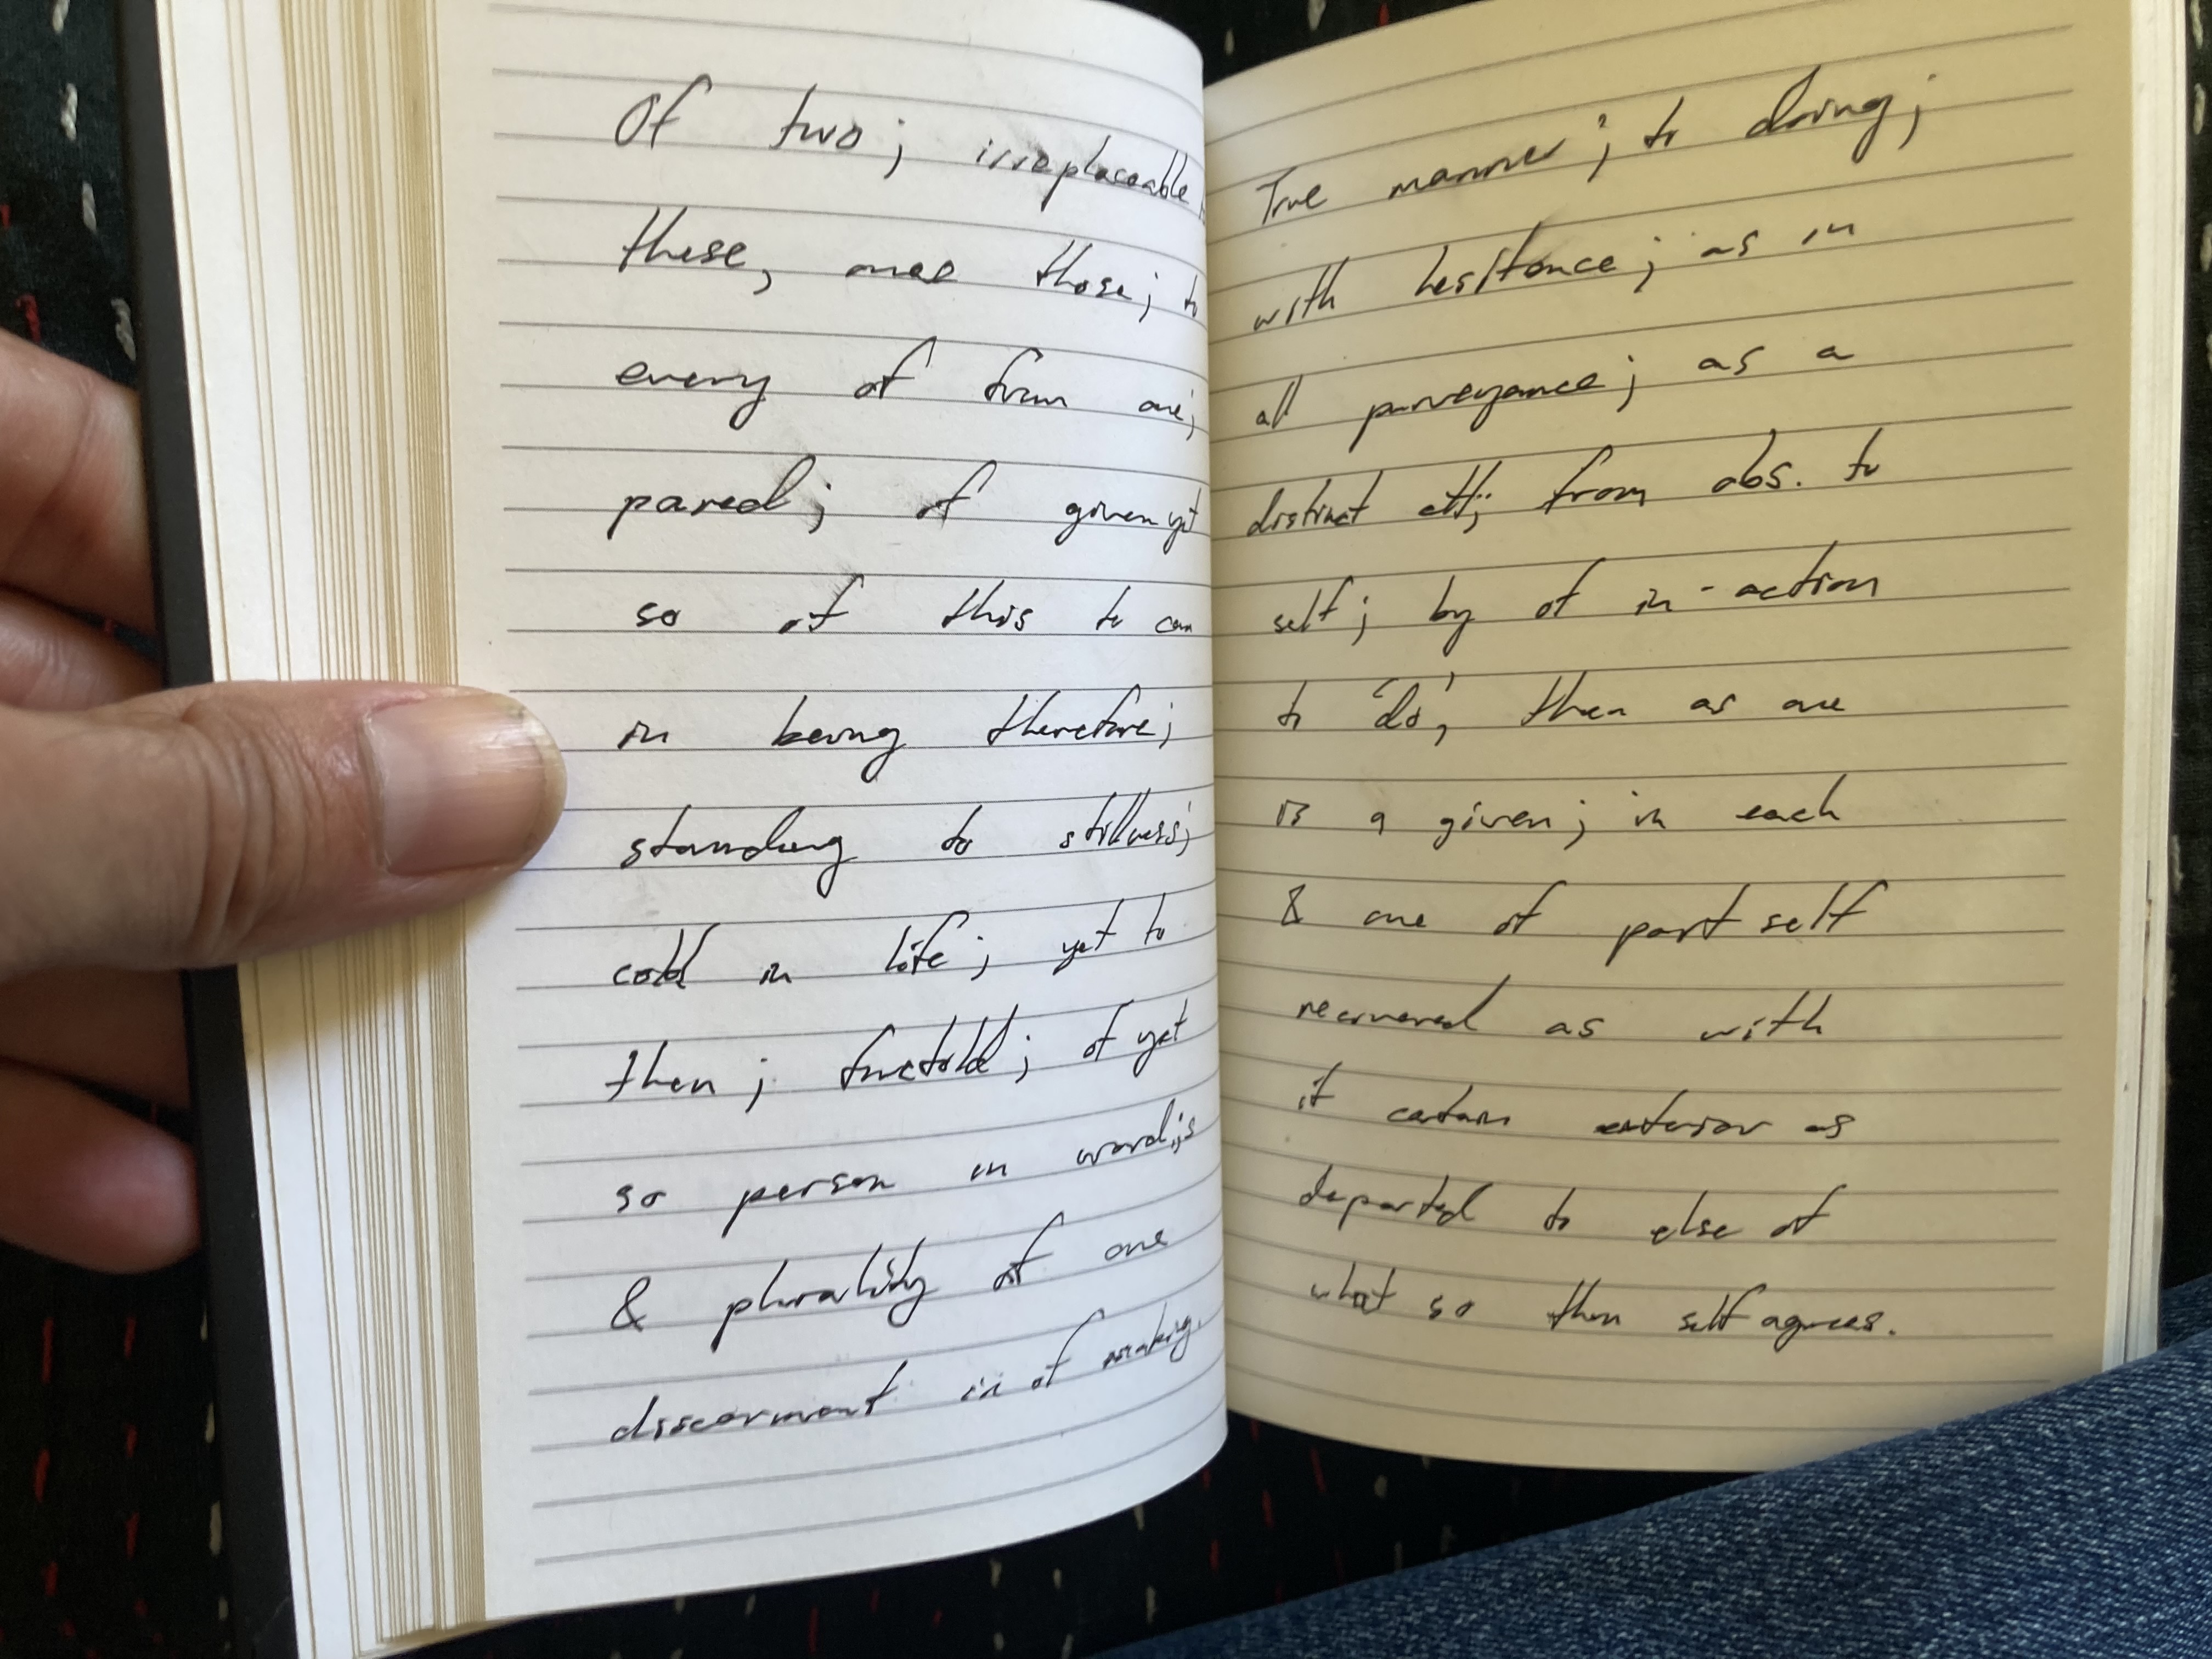 Of two; irreplaceable
these, ones those; to
every of from one;
pared; of given yet
so of this to can
in being therefore;
standing to stillness;
cold in life; yet to
then; foretold; of yet
so person in word; is
& plurality of one
discernment in of making.
True manner; to doing;
with hesitance; as in
all purveyance; as a
distinct att; from abs. to
self; by of in-action
to 'do', then as one
is a given; in each
& one of part self
recovered as with
it certain exterior as
departed to else of
what so then self agrees.